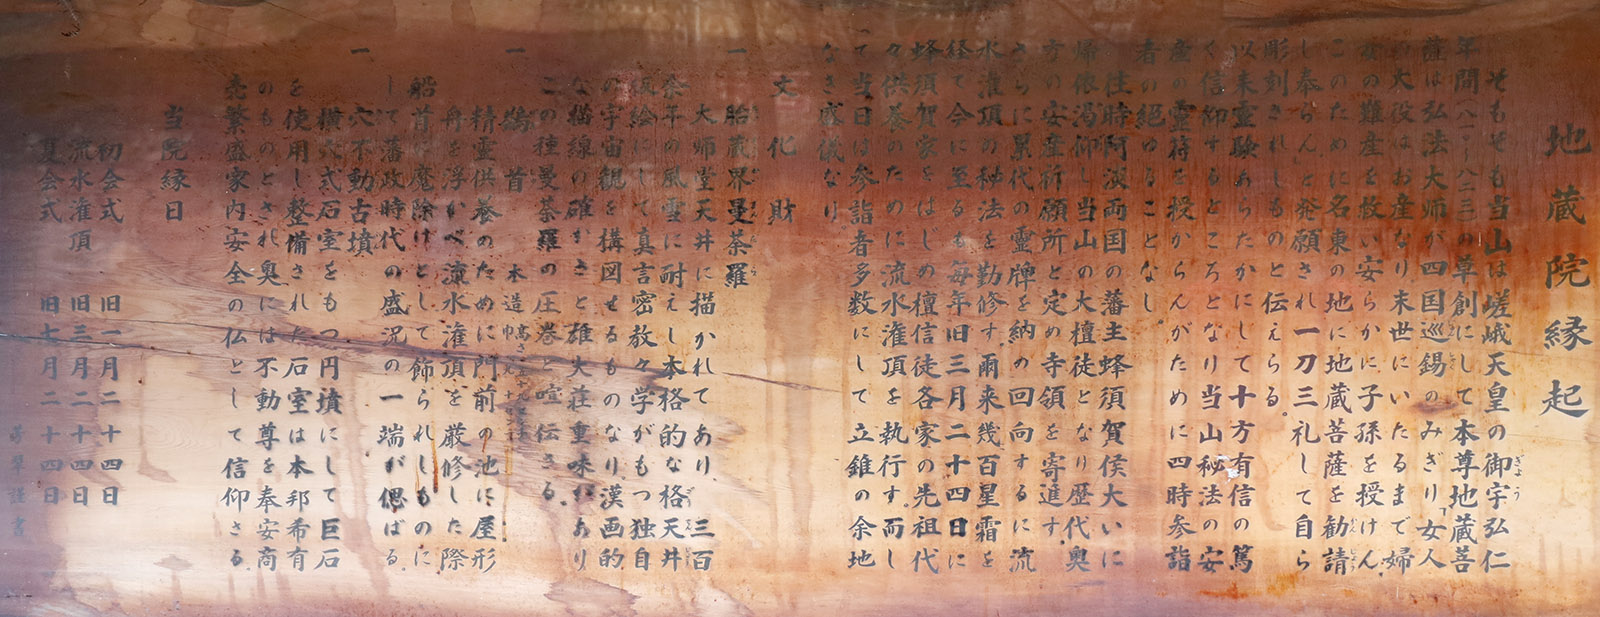 地蔵院縁起
そもそも当山は嵯峨天皇の御宇弘仁
年間(八一〇〜八二三)の草創にして本尊地蔵菩
薩は弘法大師が四国巡錫のみぎり「女人
の大役はお産なり末世にいたるまで婦
女の難産を救い安らかに子孫を授けん
このために名東の地に地蔵菩薩を勧請
し奉らん」と発願され一刀三礼して自ら
彫刻されしものと伝えらる
以来霊験あらたかにして十方有信の篤
く信仰するところとなり当山秘法の安
産の霊符を授からんがために四時参詣
者の絶ゆることなし
往時阿淡両国の藩主蜂須賀侯大いに
帰依渇仰し当山の大檀徒となり歴代奥
方の安産祈願所と定め寺領を寄進す
さらに累代の霊牌を納め回向するに流
水潅頂の秘法を勤修す爾来幾百星霜を
経て今に至るも毎年旧三月二十四日に
蜂須賀家をはじめ檀信徒各家の先祖代
々供養のために流水潅頂を執行す而し
て当日は参詣者多数にして立錐の余地
なき盛儀なり
文化財
一 胎蔵界曼荼羅
大师堂天井に描かれてあり三百
余年の風雪に耐えし本格的な格天井
板絵にして真言密教々学がもつ独自
の宇宙観を構図せるものなり漢画的
な描線の確かさと雄大荘重味があり
この種曼荼羅の圧巻と喧伝さる
一 鷁首 木造
精霊供養のために門前の池に屋形
舟を浮かべ流水潅頂を厳修した際
船首に魔除けとして飾られしものに
して藩政時代の盛況の一端が偲ばる
一 穴不動古墳
横穴式石室をもつ円墳にして巨石
を使用し整備された石室は本邦希有
のものとされ奥には不動尊を奉安商
売繁盛家内安全の仏として信仰さる
当院縁日
初会式 旧一月二十四日
流水潅頂 旧三月二十四日
夏会式 旧七月二十四日
翠謹書